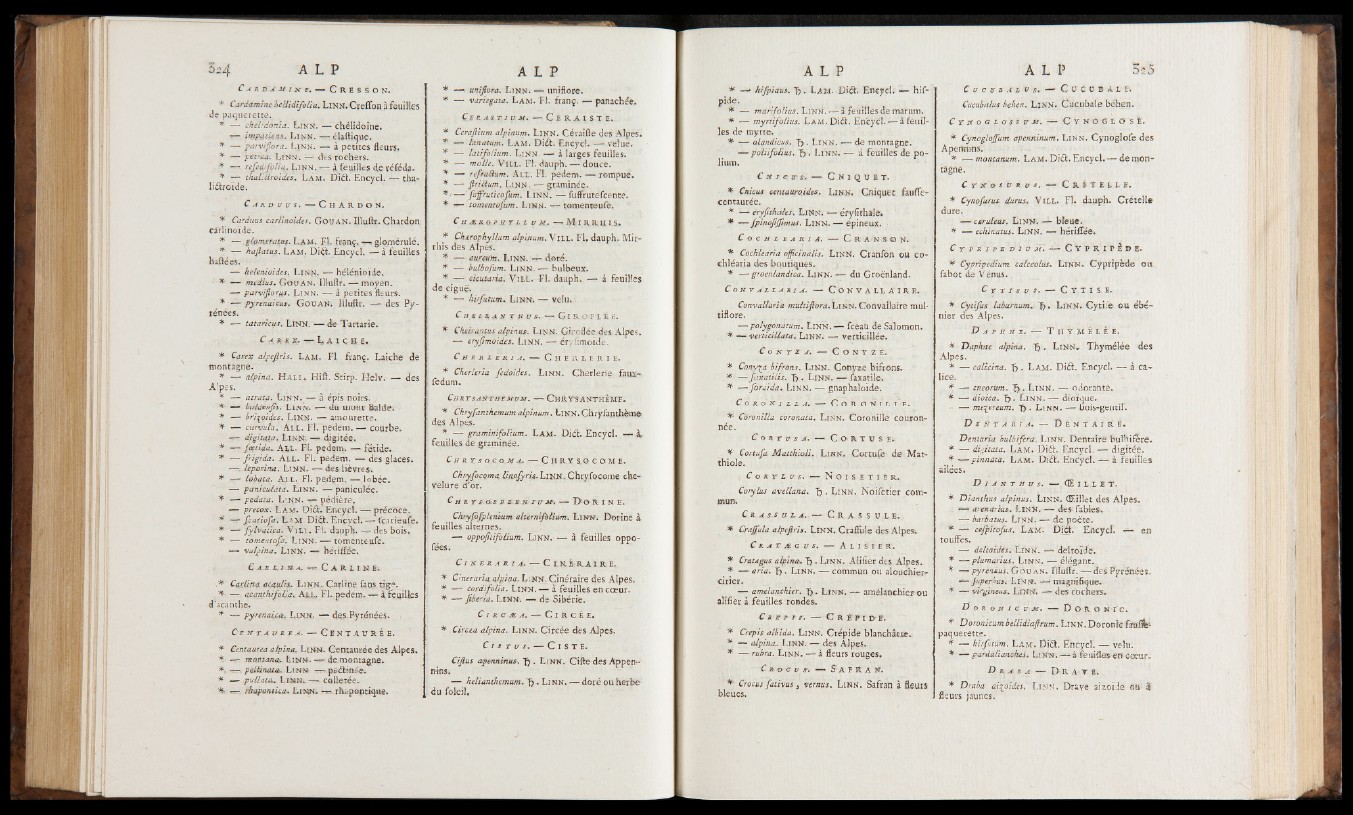 324 A L P
CARDAMINE. — CRESSON.
* Cardamine bellidifolia. LINN. Creſſon à feuilles
de paquerette.
* — chelidonia. LINN. — chélidoine.
— impatiens. LINN. — élaſtique.
* — parviflora. LINN. — à petites fleurs.
* — petræa. LINN. — des rochers.
* — reſedifolia. LINN. — à feuilles de réſéda.
* — thalictroides. LAM. Dict. Encycl. — tha-
lictroïde.
CARDUUS. — CHARDON.
* Carduus carlinoides. GOUAN. Illuſtr. Chardon
carlinoide.
* — glomeratus. LAM. Fl. franç. — glomérulé.
* — haſtatus. LAM. Dict. Encycl. — à feuilles
haſtées.
— helenioides. LINN. — hélénioïde.
* — medius. GOUAN. Illuſtr. — moyen.
— parviflorus. LINN. — à petites fleurs.
* — pyrenaicus. GOUAN. Illuſtr. — des Py-
rénées.
* — tataricus. LINN. — de Tartarie.
CAREX. — LAICHE.
* Carex alpeſtris. LAM. Fl franç. Laiche de
montagne.
* — alpina. HALL. Hiſt. Stirp. Helv. — des
Alpes.
* — atrata. LINN. — à épis noirs.
* — baldenſis. LINN. — du mont Balde.
* — brizoides. LINN. — amourette.
* — curvula. ALL. Fl. pedem. — courbe.
— digitata. LINN. — digitée.
* — fœtida. ALL. Fl. pedem. — fétide.
* — frigida. ALL. Fl. pedem. — des glaces.
— leporina. LINN. — des lièvres.
* — lobata. ALL. Fl. pedem. — lobée.
— paniculata. LINN. — paniculée.
* — pedata. LINN. — pédière.
— precox. LAM. Dict. Encycl. — précoce.
* — ſcarioſa. LAM. Dict. Encycl. — ſcarieuſe.
* — ſylvatica. VILL. Fl. dauph. — des bois.
* — tomentoſa. LINN. — tomenteuſe.
— vulpina. LINN. — hériſſée.
CARLINA. — CARLINE.
* Carlina acaulis. LINN. Carline ſans tige.
* — acanthifolia. ALL. Fl. pedem. — à feuilles
d'acanthe.
* — pyrenaica. LINN. — des Pyrénées.
CENTAUREA. — CENTAURÉE.
* Centaurea alpina. LINN. Centaurée des Alpes.
* — montana. LINN. — de montagne.
* — pectinata. LINN. — pectinée.
* — pullata. LINN. — colletée.
* — rhapontica. LINN. — rhapontique.
A L P
* — uniflora. LINN. — uniflore.
* — variegata. LAM. Fl. franç. — panachée.
CERASTIUM. — CERAISTE.
* Ceraſtium alpinum. LINN. Céraiſte des Alpes.
* — lanatum. LAM. Dict. Encycl. — velue.
* — latifolium. LINN. — à larges feuilles.
* — molle. VILL. Fl. dauph. — douce.
* — refractum. ALL. Fl. pedem. — rompue.
* — ſtrictum. LINN. — graminée.
* — ſuffruticoſum. LINN. — ſuffruteſcente.
* — tomentoſum. LINN. — tomenteuſe.
CHÆROPHYLLUM. — MIRRHIS.
* Chærophyllum alpinum. VILL. Fl. dauph. Mir-
rhis des Alpes.
* — aureum. LINN. — doré.
* — bulboſum. LINN. — bulbeux.
* — cicutaria. VILL. Fl. dauph. — à feuilles
de ciguë.
* — hirſutum. LINN. — velu.
CHEIRANTHUS. — GIROFLÉE.
* Cheirantus alpinus. LINN. Giroflée des Alpes.
— eryſimoides. LINN. — éryſimoïde.
CHERLERIA. — CHERLERIE.
* Cherleria ſedoides. LINN. Cherlerie faux-
ſedum.
CHRYSANTHEMUM. — CHRYSANTHÈME.
* Chryſanthemum alpinum. LINN. Chryſanthème
des Alpes.
* — graminifolium. LAM. Dict. Encycl. — à
feuilles de graminée.
CHRYSOCOMA. — CHRYSOCOME.
Chryſocoma linoſyris. LINN. Chryſocome che-
velure d'or.
CHRYSOSPLENIUM. — DORINE.
Chryſoſplenium alternifolium. LINN. Dorine à
feuilles alternes.
— oppoſitifolium. LINN. — à feuilles oppo-
ſées.
CINERARIA. — CINÉRAIRE.
* Cineraria alpina. LINN. Cinéraire des Alpes.
* — cordifolia. LINN. — à feuilles en cœur.
* — ſibirica. LINN. — de Sibérie.
CIRCÆA. — CIRCÉE.
* Circea alpina. LINN. Circée des Alpes.
CISTUS. — CISTE.
Ciſtus apenninus. ♄. LINN. Ciſte des Appen-
nins.
— helianthemum. ♄. LINN. — doré ou herbe
du ſoleil.
A L P
* — hiſpidus. ♄. LAM. Dict. Encycl. — hiſ-
pide.
* — marifolius. LINN. — à feuilles de marum.
* — myrtifolius. LAM. Dict. Encycl. — à feuil-
les de myrte.
* — œlandicus. ♄. LINN. — de montagne.
— polifolius. ♄. LINN. — à feuilles de po-
lium.
CNICUS. — CNIQUET.
* Cnicus centauroides. LINN. Cniquet fauſſe-
centaurée.
* — eryſithales. LINN. — éryſithale.
* — ſpinoſiſſimus. LINN. — épineux.
COCHLEARIA. — CRANSON.
* Cochlearia officinalis. LINN. Cranſon ou co-
chléaria des boutiques.
* — groenlandica. LINN. — du Groënland.
CONVALLARIA. — CONVALLAIRE.
Convallaria multiflora. LINN. Convallaire mul-
tiflore.
— polygonatum. LINN. — ſceau de Salomon.
* — verticillata. LINN. — verticillée.
CONYZA. — CONYZE.
* Conyza bifrons. LINN. Conyze bifrons.
* — ſaxatilis. ♄. LINN. — ſaxatile.
* — ſordida. LINN. — gnaphaloïde.
CORONILLA. — CORONILLE.
* Coronilla coronata. LINN. Coronille couron-
née.
CORTUSA. — CORTUSE.
* Cortuſa Matthioli. LINN. Cortuſe de Mat-
thiole.
CORYLUS. — NOISETIER.
Corylus avellana. ♄. LINN. Noiſetier com-
mun.
CRASSULA. — CRASSULE.
* Craſſula alpeſtris. LINN. Craſſule des Alpes.
CRATÆGUS. — ALISIER.
* Cratagus alpina. ♄. LINN. Aliſier des Alpes.
* — aria. ♄. LINN. — commun ou alouchier-
cirier.
— amelanchier. ♄. LINN. — amélanchier ou
aliſier à feuilles rondes.
CREPIS. — CRÉPIDE.
* Crepis albida. LINN. Crépide blanchâtre.
* — alpina. LINN. — des Alpes.
* — rubra. LINN. — à fleurs rouges.
CROCUS. — SAFRAN.
* Crocus ſativus, vernus. LINN. Safran à fleurs
bleues.
A L P 325
CUCUBALUS. — CUCUBALE.
Cucubalus behen. LINN. Cucubale béhen.
CYNOGLOSSUM. — CYNOGLOSE.
* Cynogloſſum apenninum. LINN. Cynogloſe des
Apennins.
* — montanum. LAM. Dict. Encycl. — de mon-
tagne.
CYNOSURUS. — CRÉTELLE.
* Cynoſurus durus. VILL. Fl. dauph. Crételle
dure.
— cæruleus. LINN. — bleue.
* — echinatus. LINN. — hériſſée.
CYPRIPEDIUM. — CYPRIPÈDE.
* Cypripedium calceolus. LINN. Cypripède ou
ſabot de Vénus.
CYTISUS. — CYTISE.
* Cytiſus laburnum. ♄. LINN. Cytiſe ou ébé-
nier des Alpes.
DAPHNE. — THYMÉLÉE.
* Daphne alpina. ♄. LINN. Thymélée des
Alpes.
* — calicina. ♄. LAM. Dict. Encycl. — à ca-
lice.
* — cneorum. ♄. LINN. — odorante.
* — dioica. ♄. LINN. — dioïque.
— mezereum. ♄. LINN. — bois-gentil.
DENTARIA. — DENTAIRE.
Dentaria bulbifera. LINN. Dentaire bulbifère.
* — digitata. LAM. Dict. Encycl. — digitée.
* — pinnata. LAM. Dict. Encycl. — à feuilles
ailées.
DIANTHUS. — ŒILLET.
* Dianthus alpinus. LINN. Œillet des Alpes.
* — arenarius. LINN. — des ſables.
— barbatus. LINN. — de poëte.
* — ceſpitoſus. LAM. Dict. Encycl. — en
touffes.
— deltoides. LINN. — deltoïde.
* — plumarius. LINN. — élégant.
* — pyreneus. GOUAN. Illuſtr. — des Pyrénées.
* — ſuperbus. LINN. — magnifique.
* — virgineus. LINN. — des rochers.
DORONICUM. — DORONIC.
* Doronicum bellidiaſtrum. LINN. Doronic fauſſe-
paquerette.
* — hirſutum. LAM. Dict. Encycl. — velu.
* — pardalianches. LINN. — à feuilles en cœur.
DRABA — DRAVE.
* Draba aizoides. LINN. Drave aizoide ou à
fleurs jaunes.